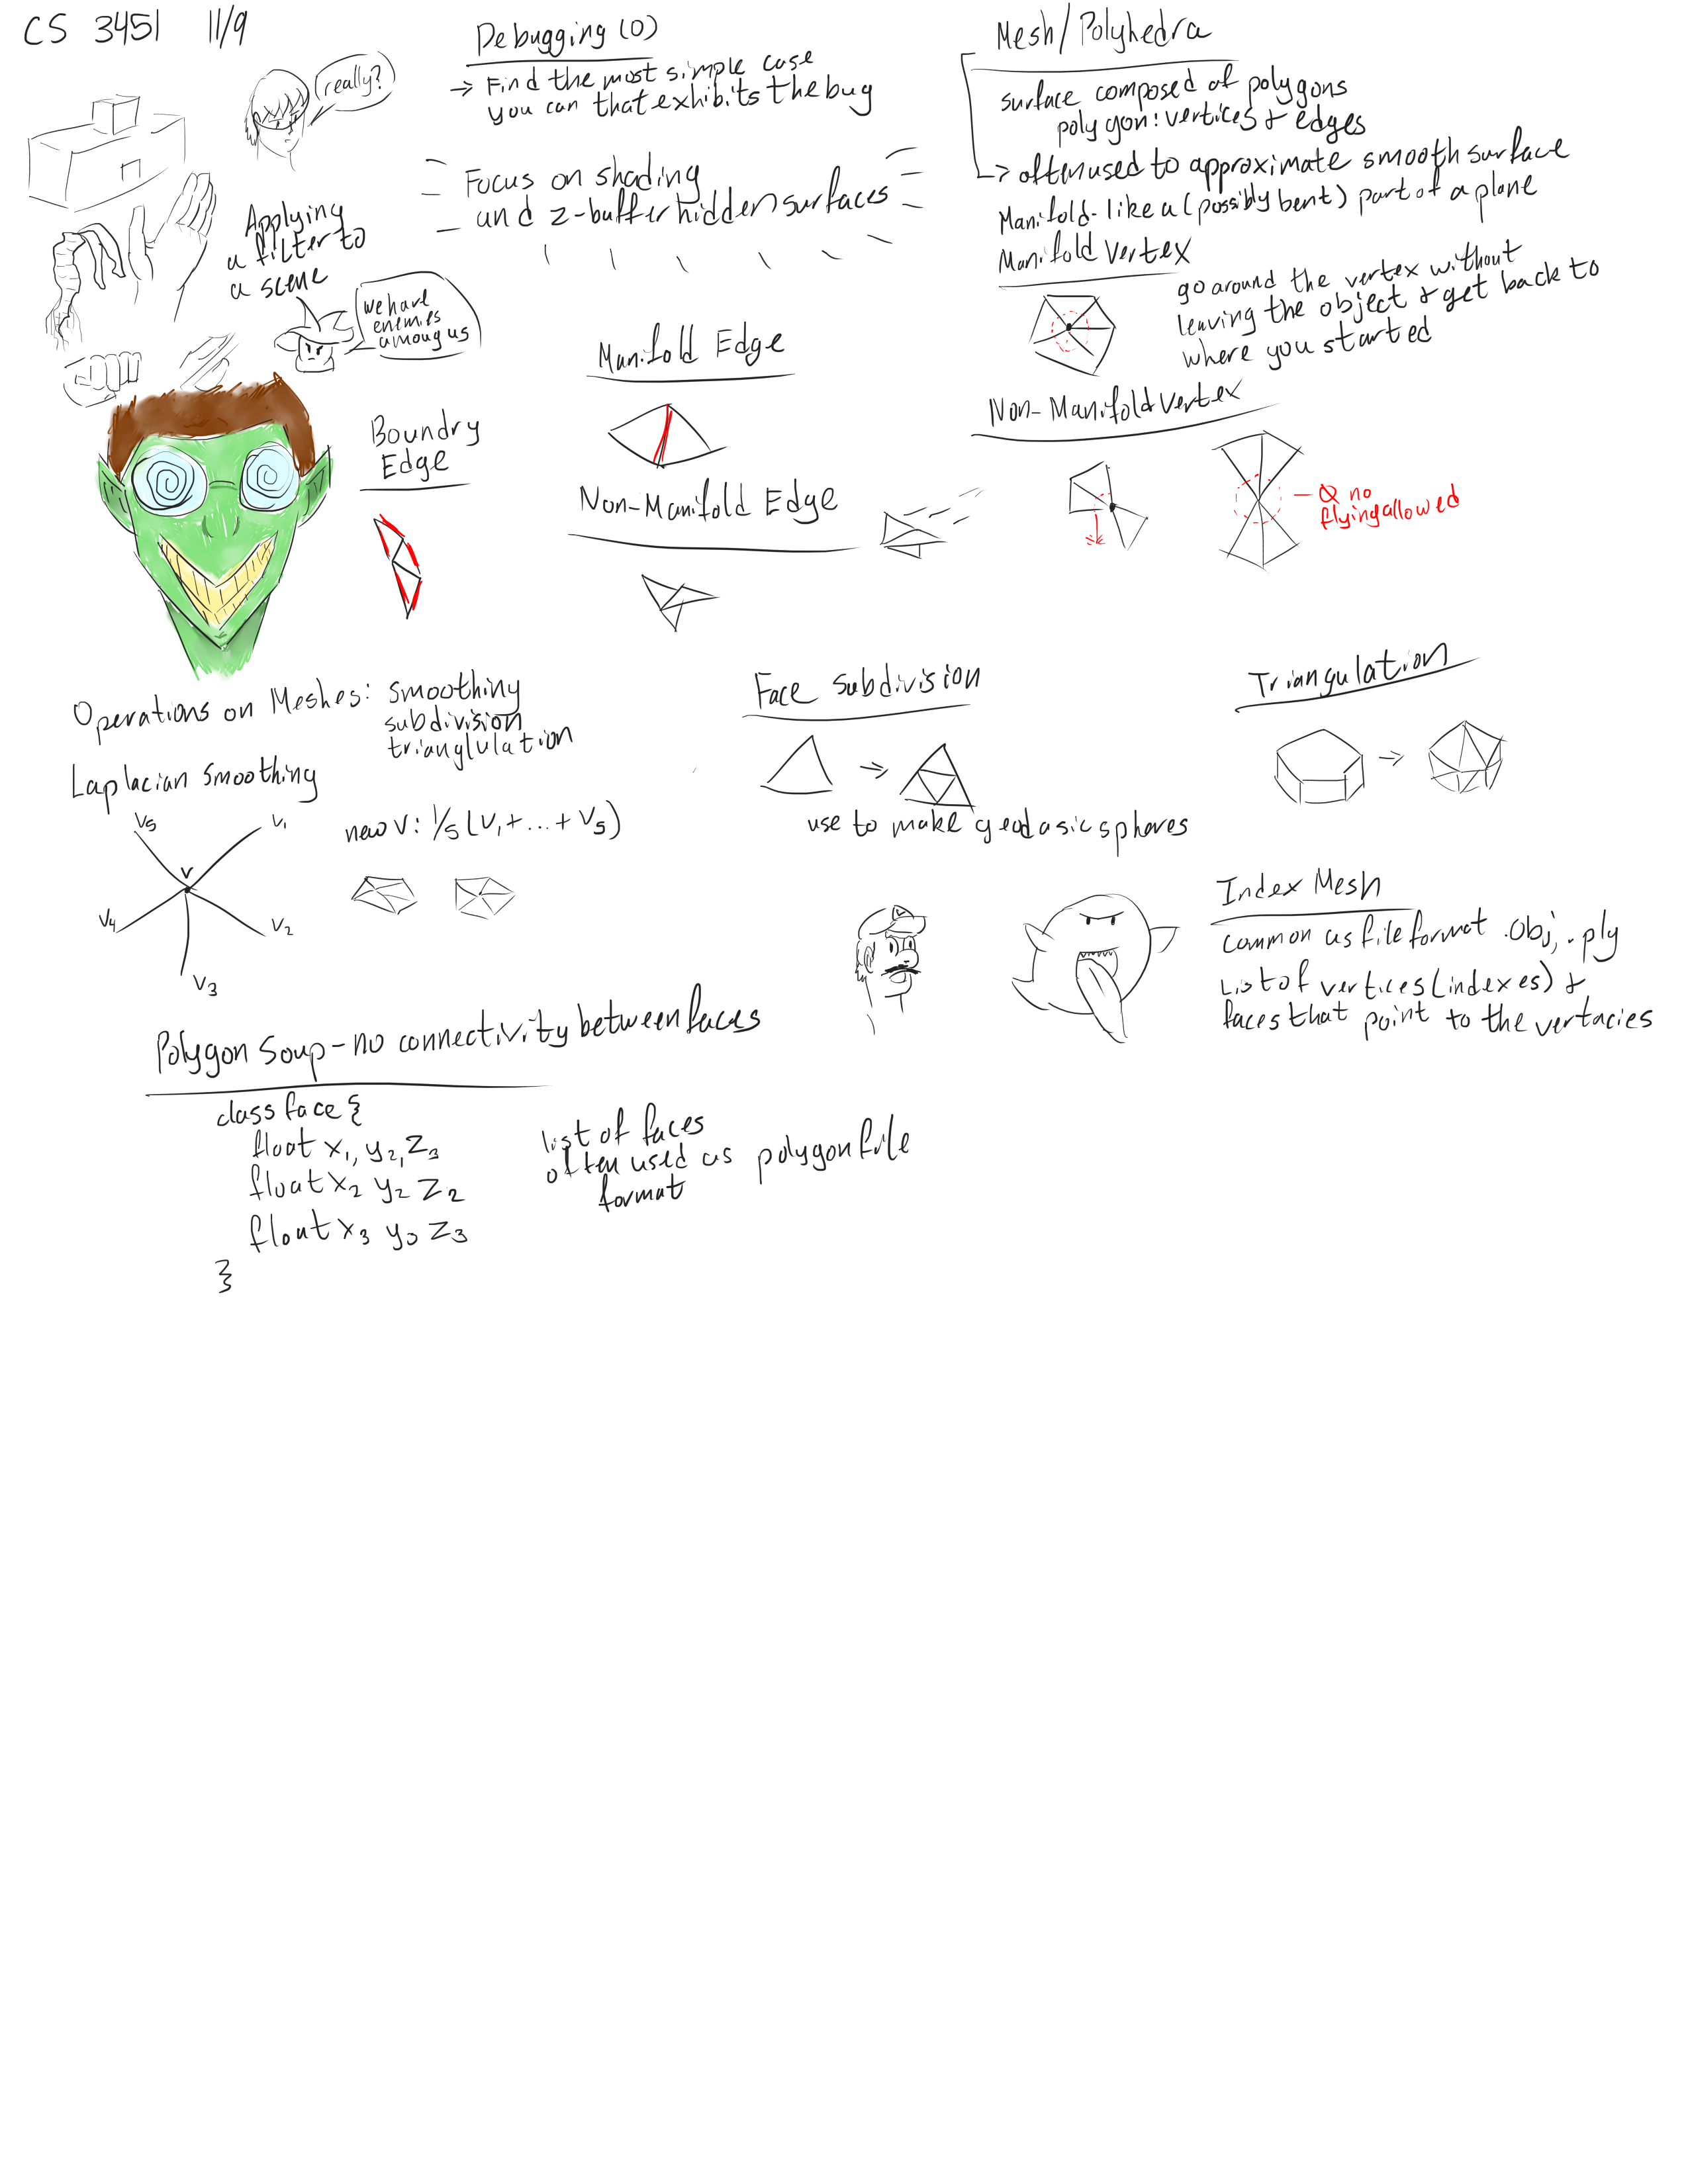 CS 3451 11/9
really?
Applying
a filter to
a scene
we have
enemies
among us
Debugging (0)
→ Find the most simple case
you can that exhibits the bug
Focus on shading
and z-buffer hidden surfaces
Mesh/Polyhedra
surface composed of polygons
polygon: vertices & edges
→ often used to approximate smooth surface
Manifold - like a (possibly bent) part of a plane
Manifold Vertex
go around the vertex without
leaving the object & get back to
where you started
Manifold Edge
Boundry
Edge
Non-Manifold Edge
Non-Manifold Vertex
no
flying allowed
Operations on Meshes: smoothing
subdivision
trianglulation
Laplacian Smoothing
V5
V1
V
V4
V2
V3
new V: 1/5 (V1 + ... + V5)
Face Subdivision
⇒
use to make geodasic spheres
Triangulation
⇒
Index Mesh
common as file format .obj, .ply
List of vertices (indexes) &
faces that point to the vertacies
Polygon Soup - no connectivity between faces
class face {
float x1, y2, z3
float x2 y2 z2
float x3 y3 z3
}
list of faces
often used as polygon file
format